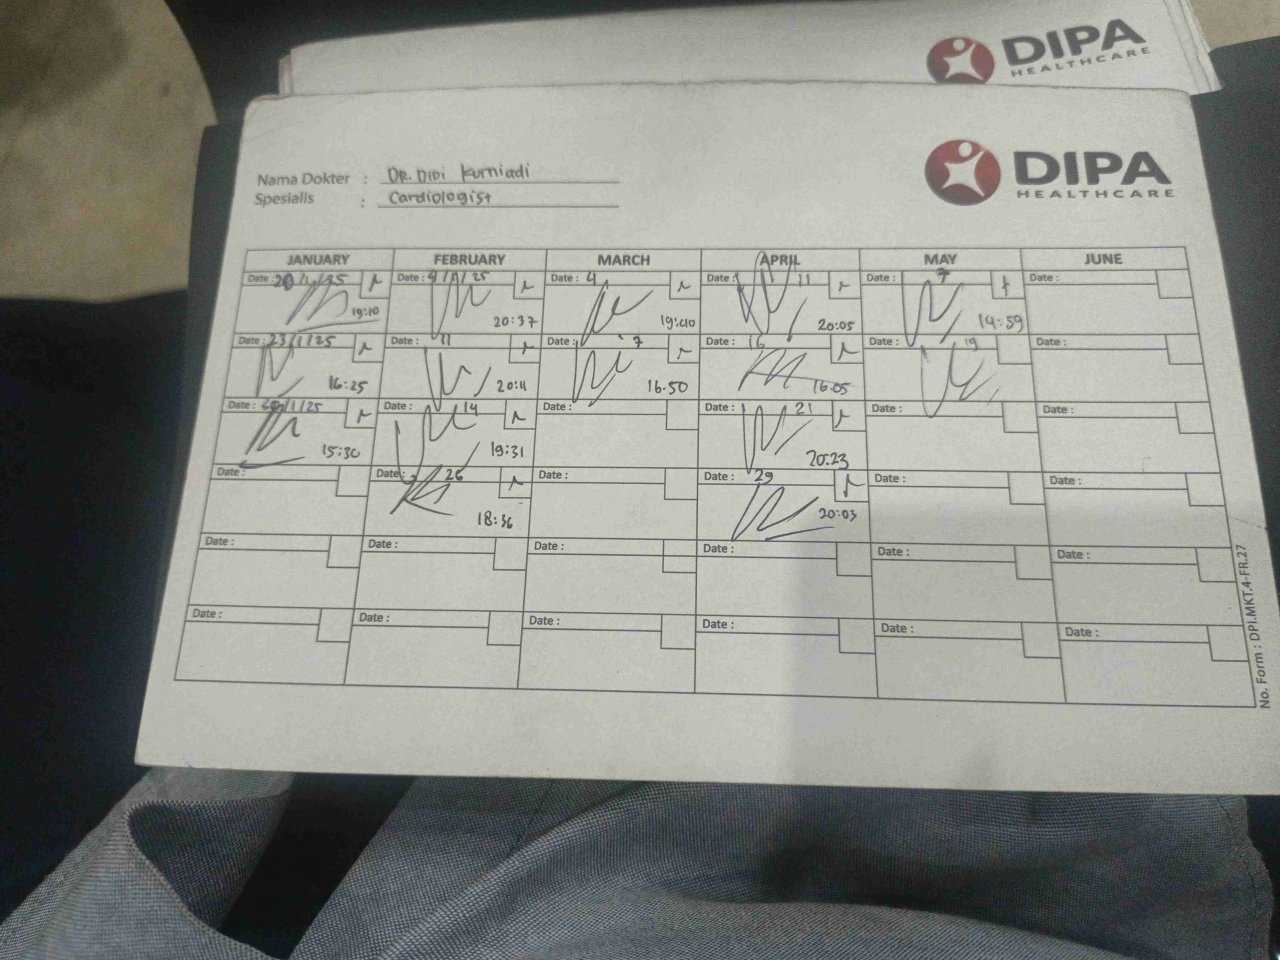 DIPA
HEALTHCARE
DIPA
HEALTHCARE
Nama Dokter : DR. DIDI Kurniadi
Spesialis : Cardiologist
JANUARY FEBRUARY MARCH APRIL MAY JUNE
Date : 20/1/25 Date : 4/ /25 Date : 4 Date : 11 Date : 7 Date :
19:10 20:37 19:40 20:05 14:59
Date : 23/1/25 Date : 11 Date : 7 Date : 16 Date : 19 Date :
16:25 20:11 16.50 16.05
Date : /1/25 Date : 14 Date : Date : 21 Date : Date :
15:30 19:31 20:23
Date : Date : 26 Date : Date : 29 Date : Date :
18:36 20:03
Date : Date : Date : Date : Date : Date :
Date : Date : Date : Date : Date : Date :
No. Form : DPI.MKT.4-FR.27